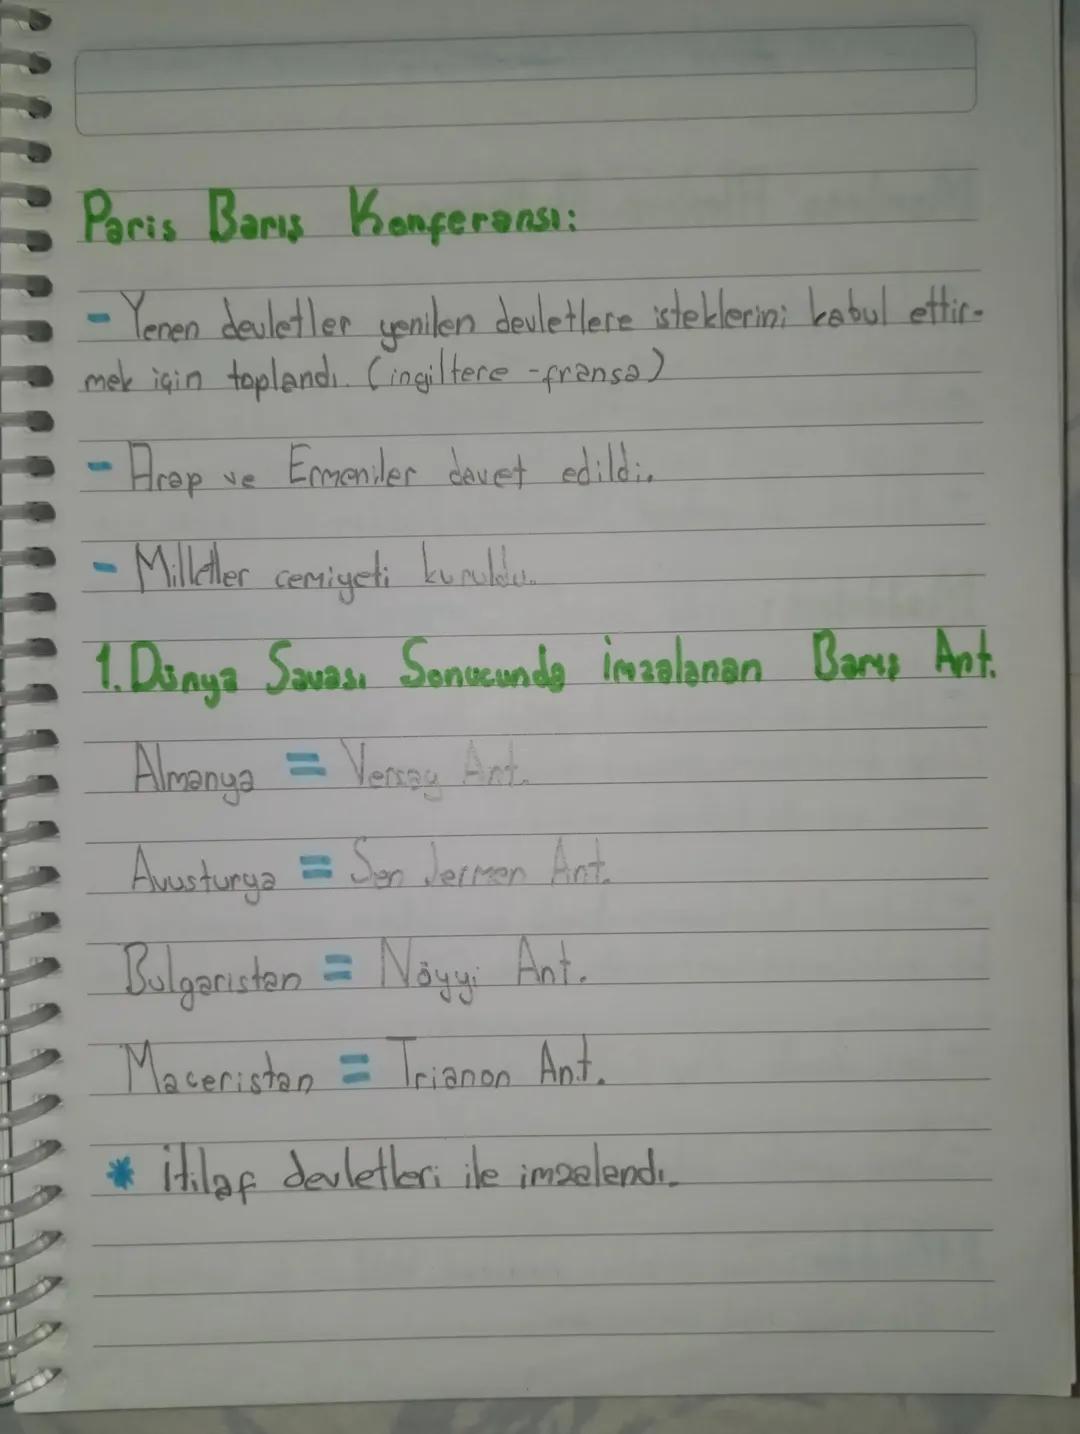 Paris Barış Konferansı:
- Yenen devletler yenilen devletlere isteklerini kabul ettir-
mek için toplandı. (ingiltere - fransa)
- Arap ve Ermeniler davet edildi.
- Milletler cemiyeti kuruldu.
1. Dünya Savaşı Sonucunda imzalanan Barış Ant.
Almanya = Versay Ant.
Avusturya = Sen Jermen Ant.
Bulgaristan = Nöyyi Ant.
Maceristan = Trianon Ant.
* itilaf devletleri ile imzalandı.